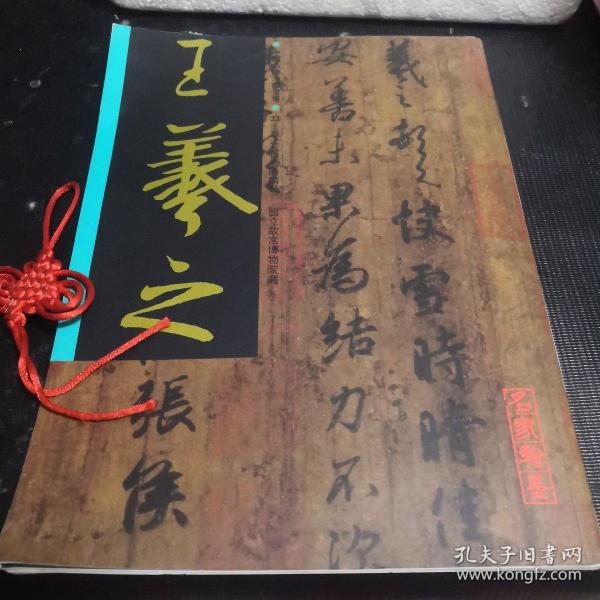 王羲之
國立故宮博物院藏
羲之頓首快雪時晴佳
安善未果為結力不次
張侯
名家翰墨
孔夫子旧书网
www.kongfz.com